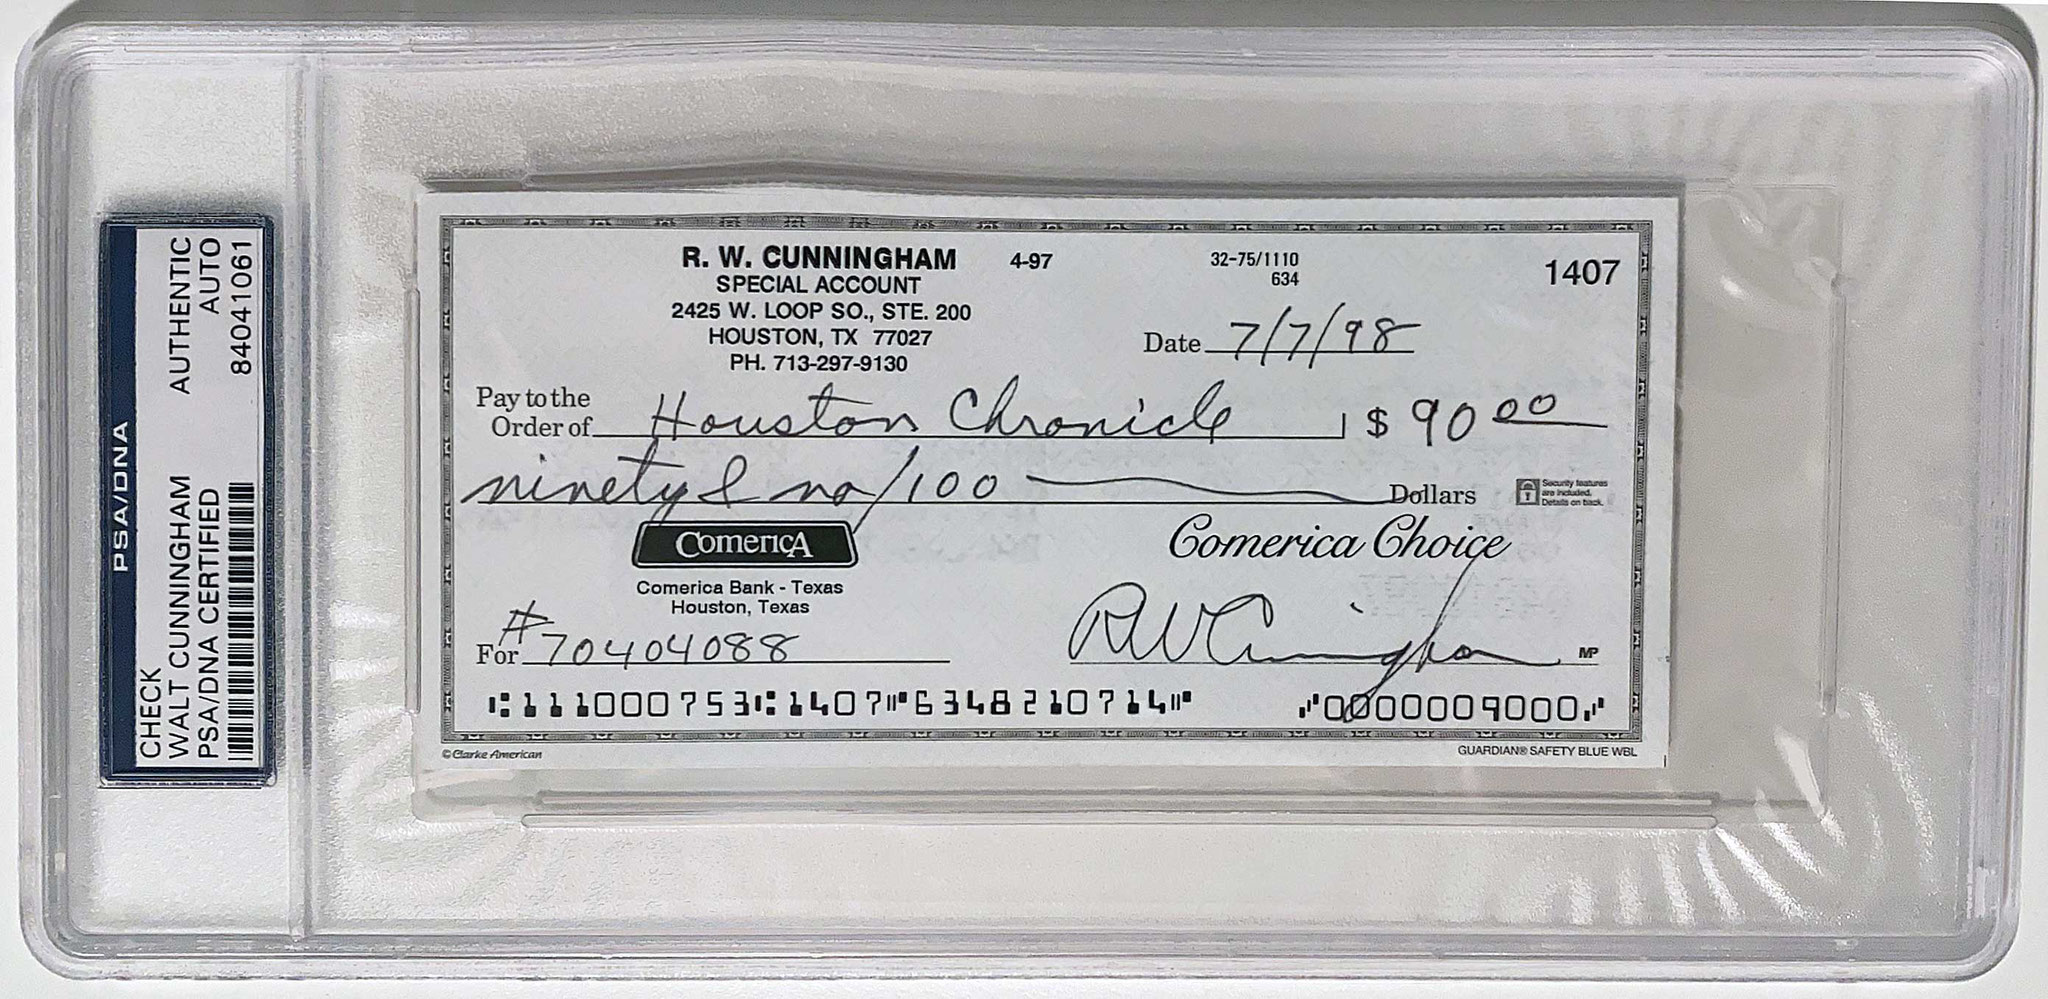 PSA/DNA
CHECK AUTHENTIC
WALT CUNNINGHAM AUTO
PSA/DNA CERTIFIED 84041061
R. W. CUNNINGHAM 4-97
SPECIAL ACCOUNT
2425 W. LOOP SO., STE. 200
HOUSTON, TX 77027
PH. 713-297-9130
32-75/1110
634
1407
Date 7/7/98
Pay to the
Order of Houston Chronicle $ 90 00
ninety & no/100 Dollars
Security features
are included.
Details on back.
ComericA
Comerica Bank - Texas
Houston, Texas
Comerica Choice
For #70404088
RW Cunningham MP
⑆111000753⑆1407⑈6348210714⑈ ⑇0000009000⑇
© Clarke American
GUARDIAN® SAFETY BLUE WBL